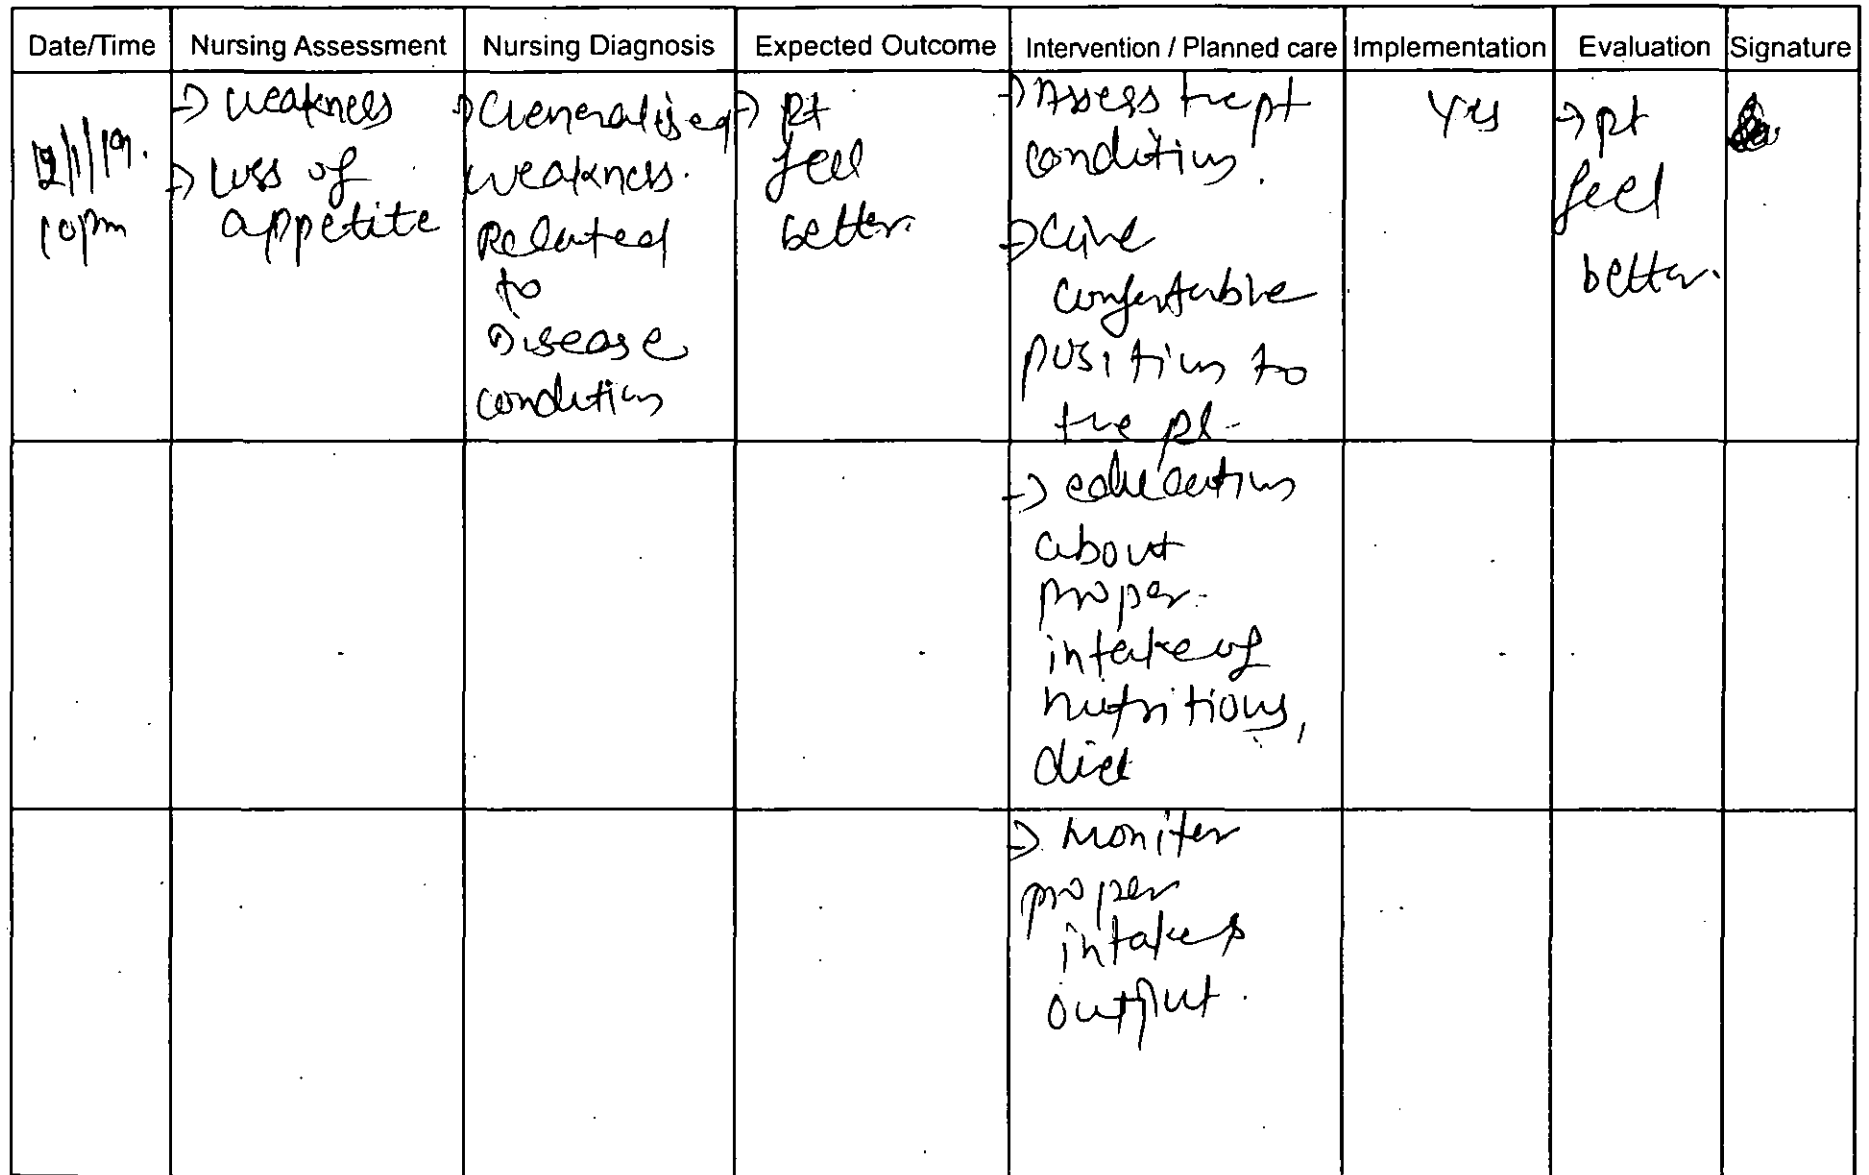 Date/Time Nursing Assessment Nursing Diagnosis Expected Outcome Intervention / Planned care Implementation Evaluation Signature
10pm
→ weakness
→ Loss of
appetite
→ Generalised
weakness.
Related
to
Disease
condition
→ pt
feel
better.
→ Assess the pt
condition.
→ Give
comfortable
position to
the pt.
→ education
about
proper
intake of
nutritious,
diet
→ Moniter
proper
intake &
output.
Yes
→ pt
feel
better.